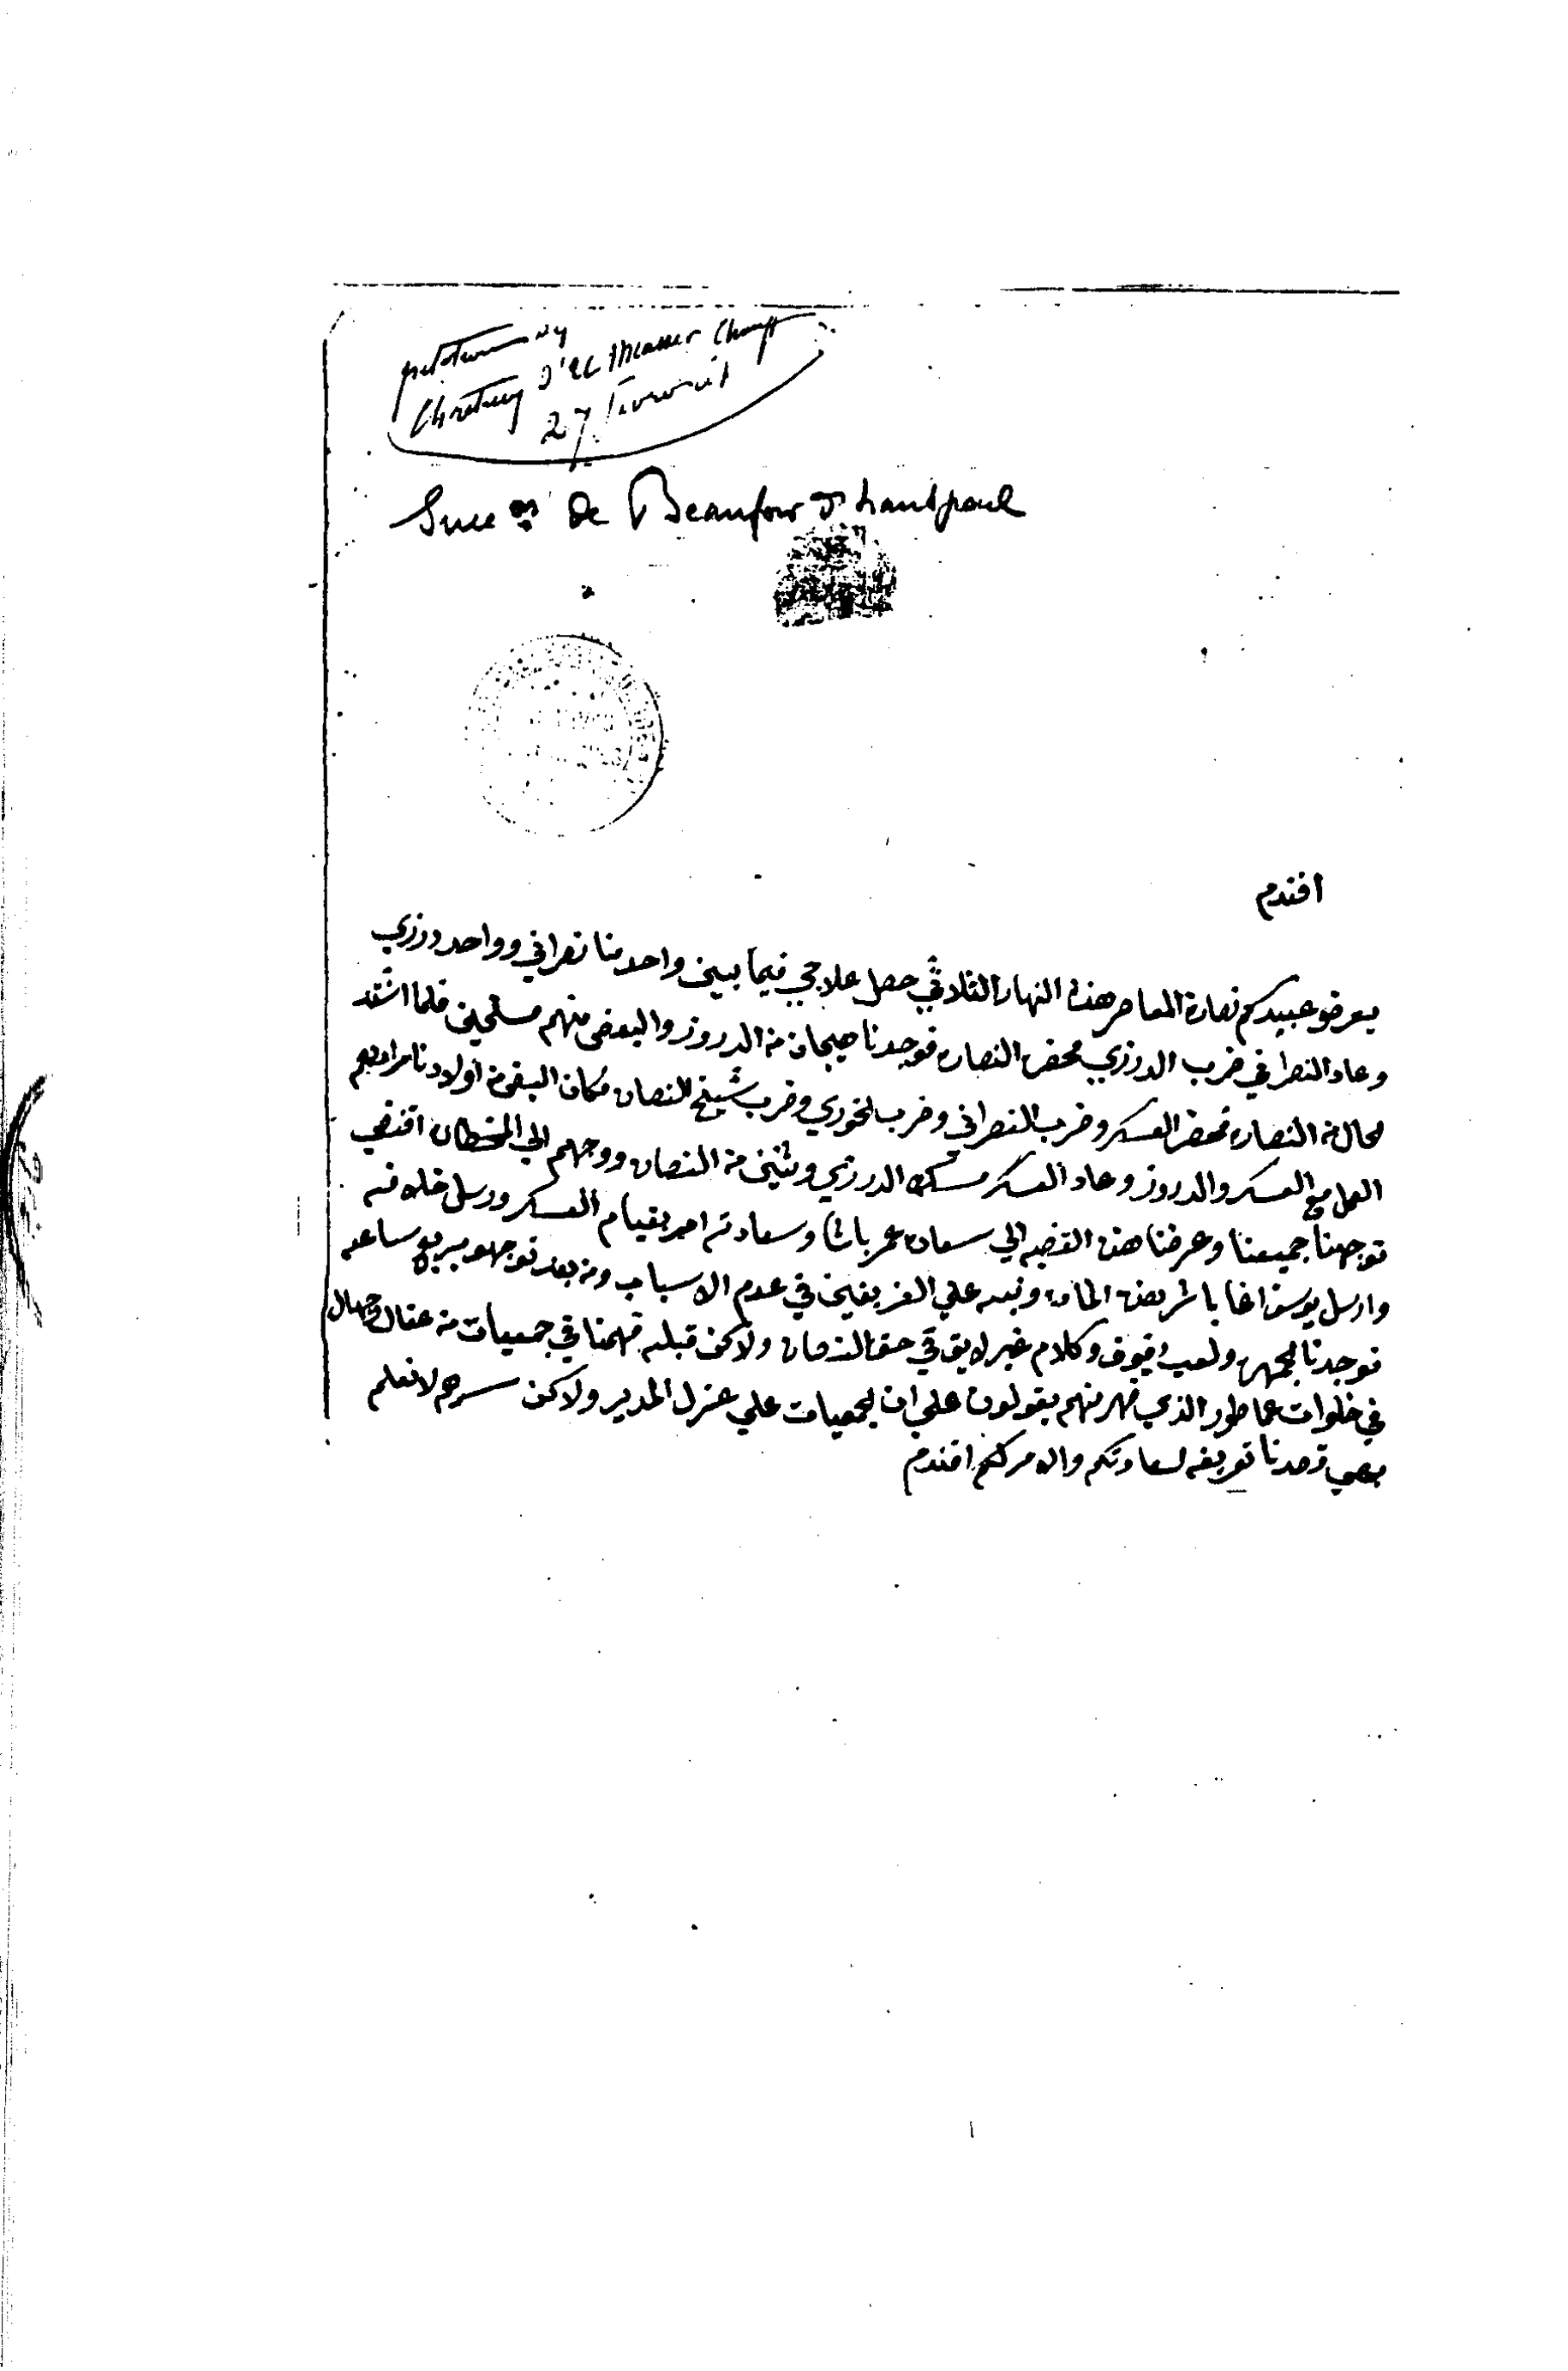 petition
Chretiens d'El Measser Chouff
27 février
Succon de Beaufort d'hautpoul
افندم
يعرضو عبيدكم نصارة المعاصر هذا النهار الثلاثي حصل علاجي فيما بين واحد منا نصراني وواحد درزي
وعاد النصراني ضرب الدرزي فحضر النصاره فوجدنا هيجان من الدروز والبعض منهم مسلحين فلما اشتد
الحال من النصاره فحضر العسكر وضرب النصراني وضرب الخوري وضرب شيخ النصاره فكان البغض من اولادنا مرادهم
العمل مع العسكر والدروز وعاد العسكر مسك الدرزي وثنين من النصاره ووجههم الي المخطاره اقتضي
توجهنا جميعنا وعرضنا هذه القضيه الي سعادة عمر باشا وسعادته امر بقيام العسكر ورسل خلافه
وارسل يوسف اغا باشر بهذه الماده ونبه علي الفريقين في عدم الاسباب ومن بعد توجهو بربع ساعه
توجدنا الجمهره ولعب وقوف وكلام غير لايق في حق النصاره ولاكن قبله فهمنا في جمعيات من عقال وجهال
في خلوات عماطور الذي ظهر منهم يقولون علي ان الجمعيات علي عزل المدير ولاكن سرهم لا نعلم
بهي قصدنا تعريفه لسعادتكم والامر لكم افندم